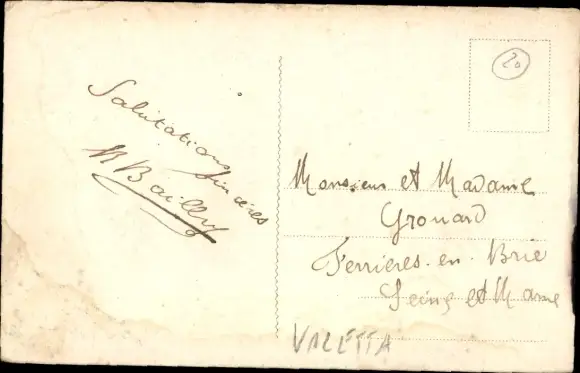 Salutations sincères
M Bailly
20
Monsieur et Madame
Grouard
Ferrières-en-Brie
Seine et Marne
VALETTA